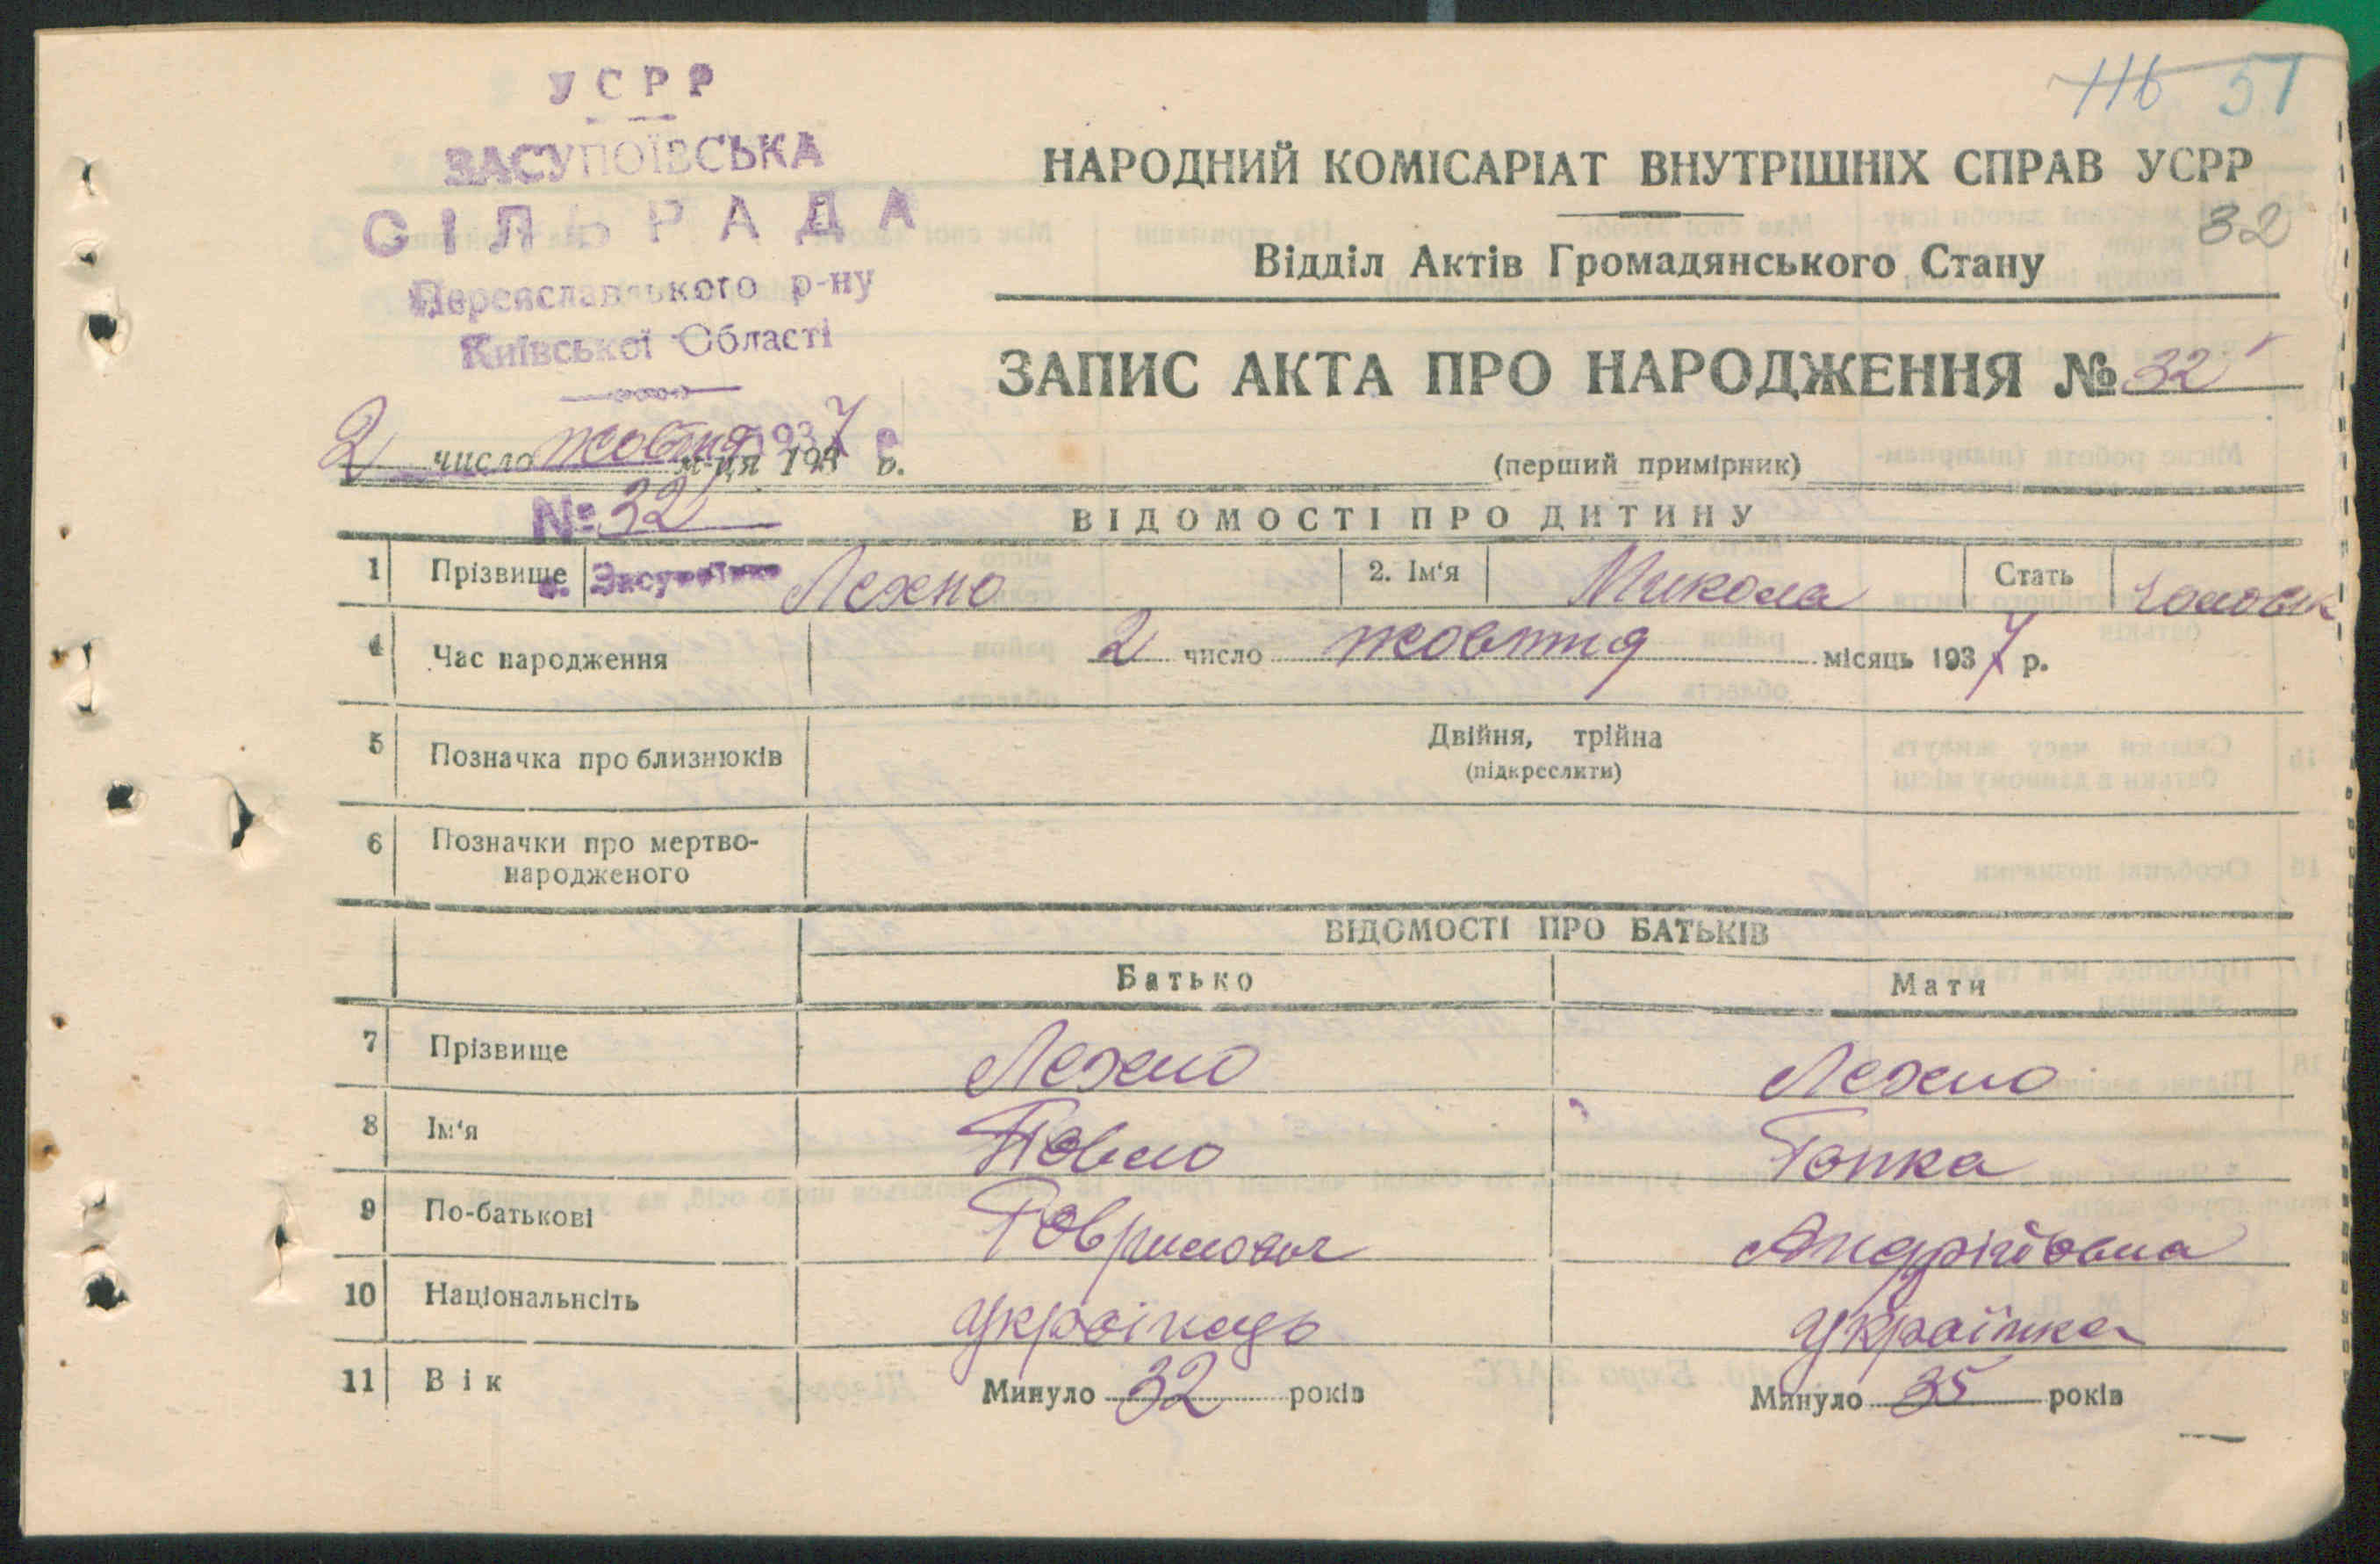 116 51
УСРР
ЗАСУПОЇВСЬКА
СІЛЬРАДА
Переяславського р-ну
Київської Області
НАРОДНИЙ КОМІСАРІАТ ВНУТРІШНІХ СПРАВ УСРР
32
Відділ Актів Громадянського Стану
ЗАПИС АКТА ПРО НАРОДЖЕННЯ № 32
2 число жовтня м-ця 1937 р.
(перший примірник)
№ 32
ВІДОМОСТІ ПРО ДИТИНУ
1 Прізвище Лехно 2. Ім'я Микола Стать чоловік
4 Час народження 2 число жовтня місяць 1937 р.
5 Позначка про близнюків Двійня, трійна
(підкреслити)
6 Позначки про мертво-
народженого
ВІДОМОСТІ ПРО БАТЬКІВ
Батько Мати
7 Прізвище Лехно Лехно
8 Ім'я Павло Гапка
9 По-батькові Гаврилович Андріївна
10 Національнсіть Українець Українка
11 Вік Минуло 32 років Минуло 35 років